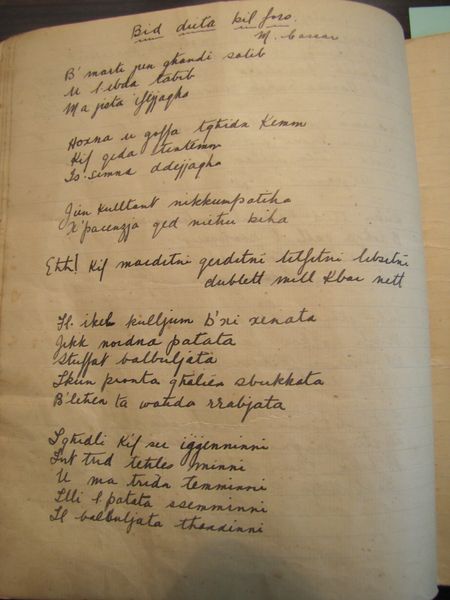 Bid dieta kil foro.
M. Cassar
B' marti pen ghandi salib
U l'ebda tabib
Ma jista' jfejjagha
Hoxna u goffa tghidx kemm
Kif qeda tintemm
Is-simna ddejjagha
Jien kulltant nikkumpatiha
X'pacenzja qed niehu biha
Ehh! Kif marditni gerditni titfitni libsitni
dublett mill Kbar nett
Il-ikel kulljum b'xi xenata
Jekk nordna patata
Stuffat balbuljata
Ikun pronta ghaliex sbukkata
B'lehen ta wahda rrabjata
Tghidli Kif se iggenninni
Int trid tehles minni
U ma tridx temminni
Illi l patata ssemminni
Il balbuljata thaxxinni